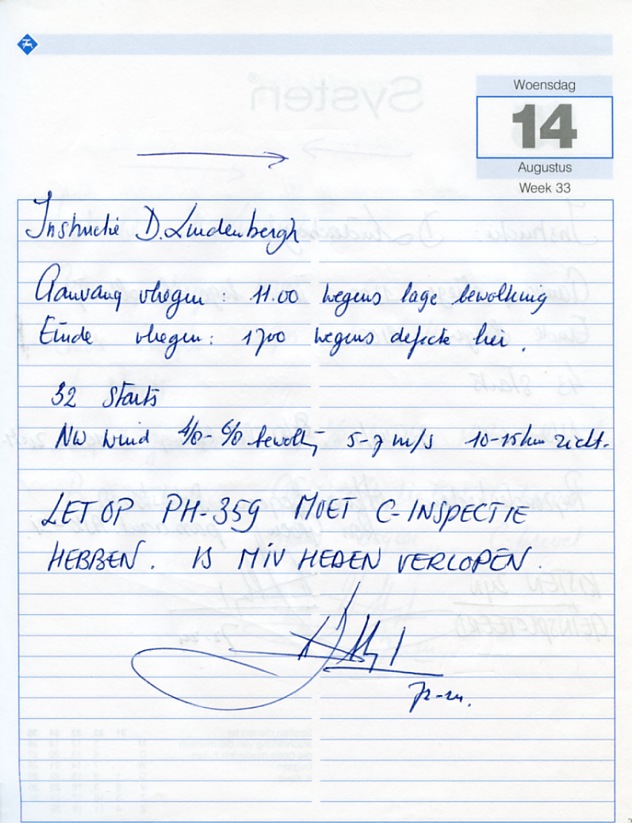 Woensdag
14
Augustus
Week 33
Instructie D. Lindenbergh
Aanvang vliegen : 11.00 wegens lage bewolking
Einde vliegen : 1700 wegens defecte lier.
32 Starts
NW wind 4/8 - 6/8 bewolkg 5-7 m/s 10-15 km zicht.
LET OP PH-359 MOET C-INSPECTIE
HEBBEN. IS MIV HEDEN VERLOPEN.